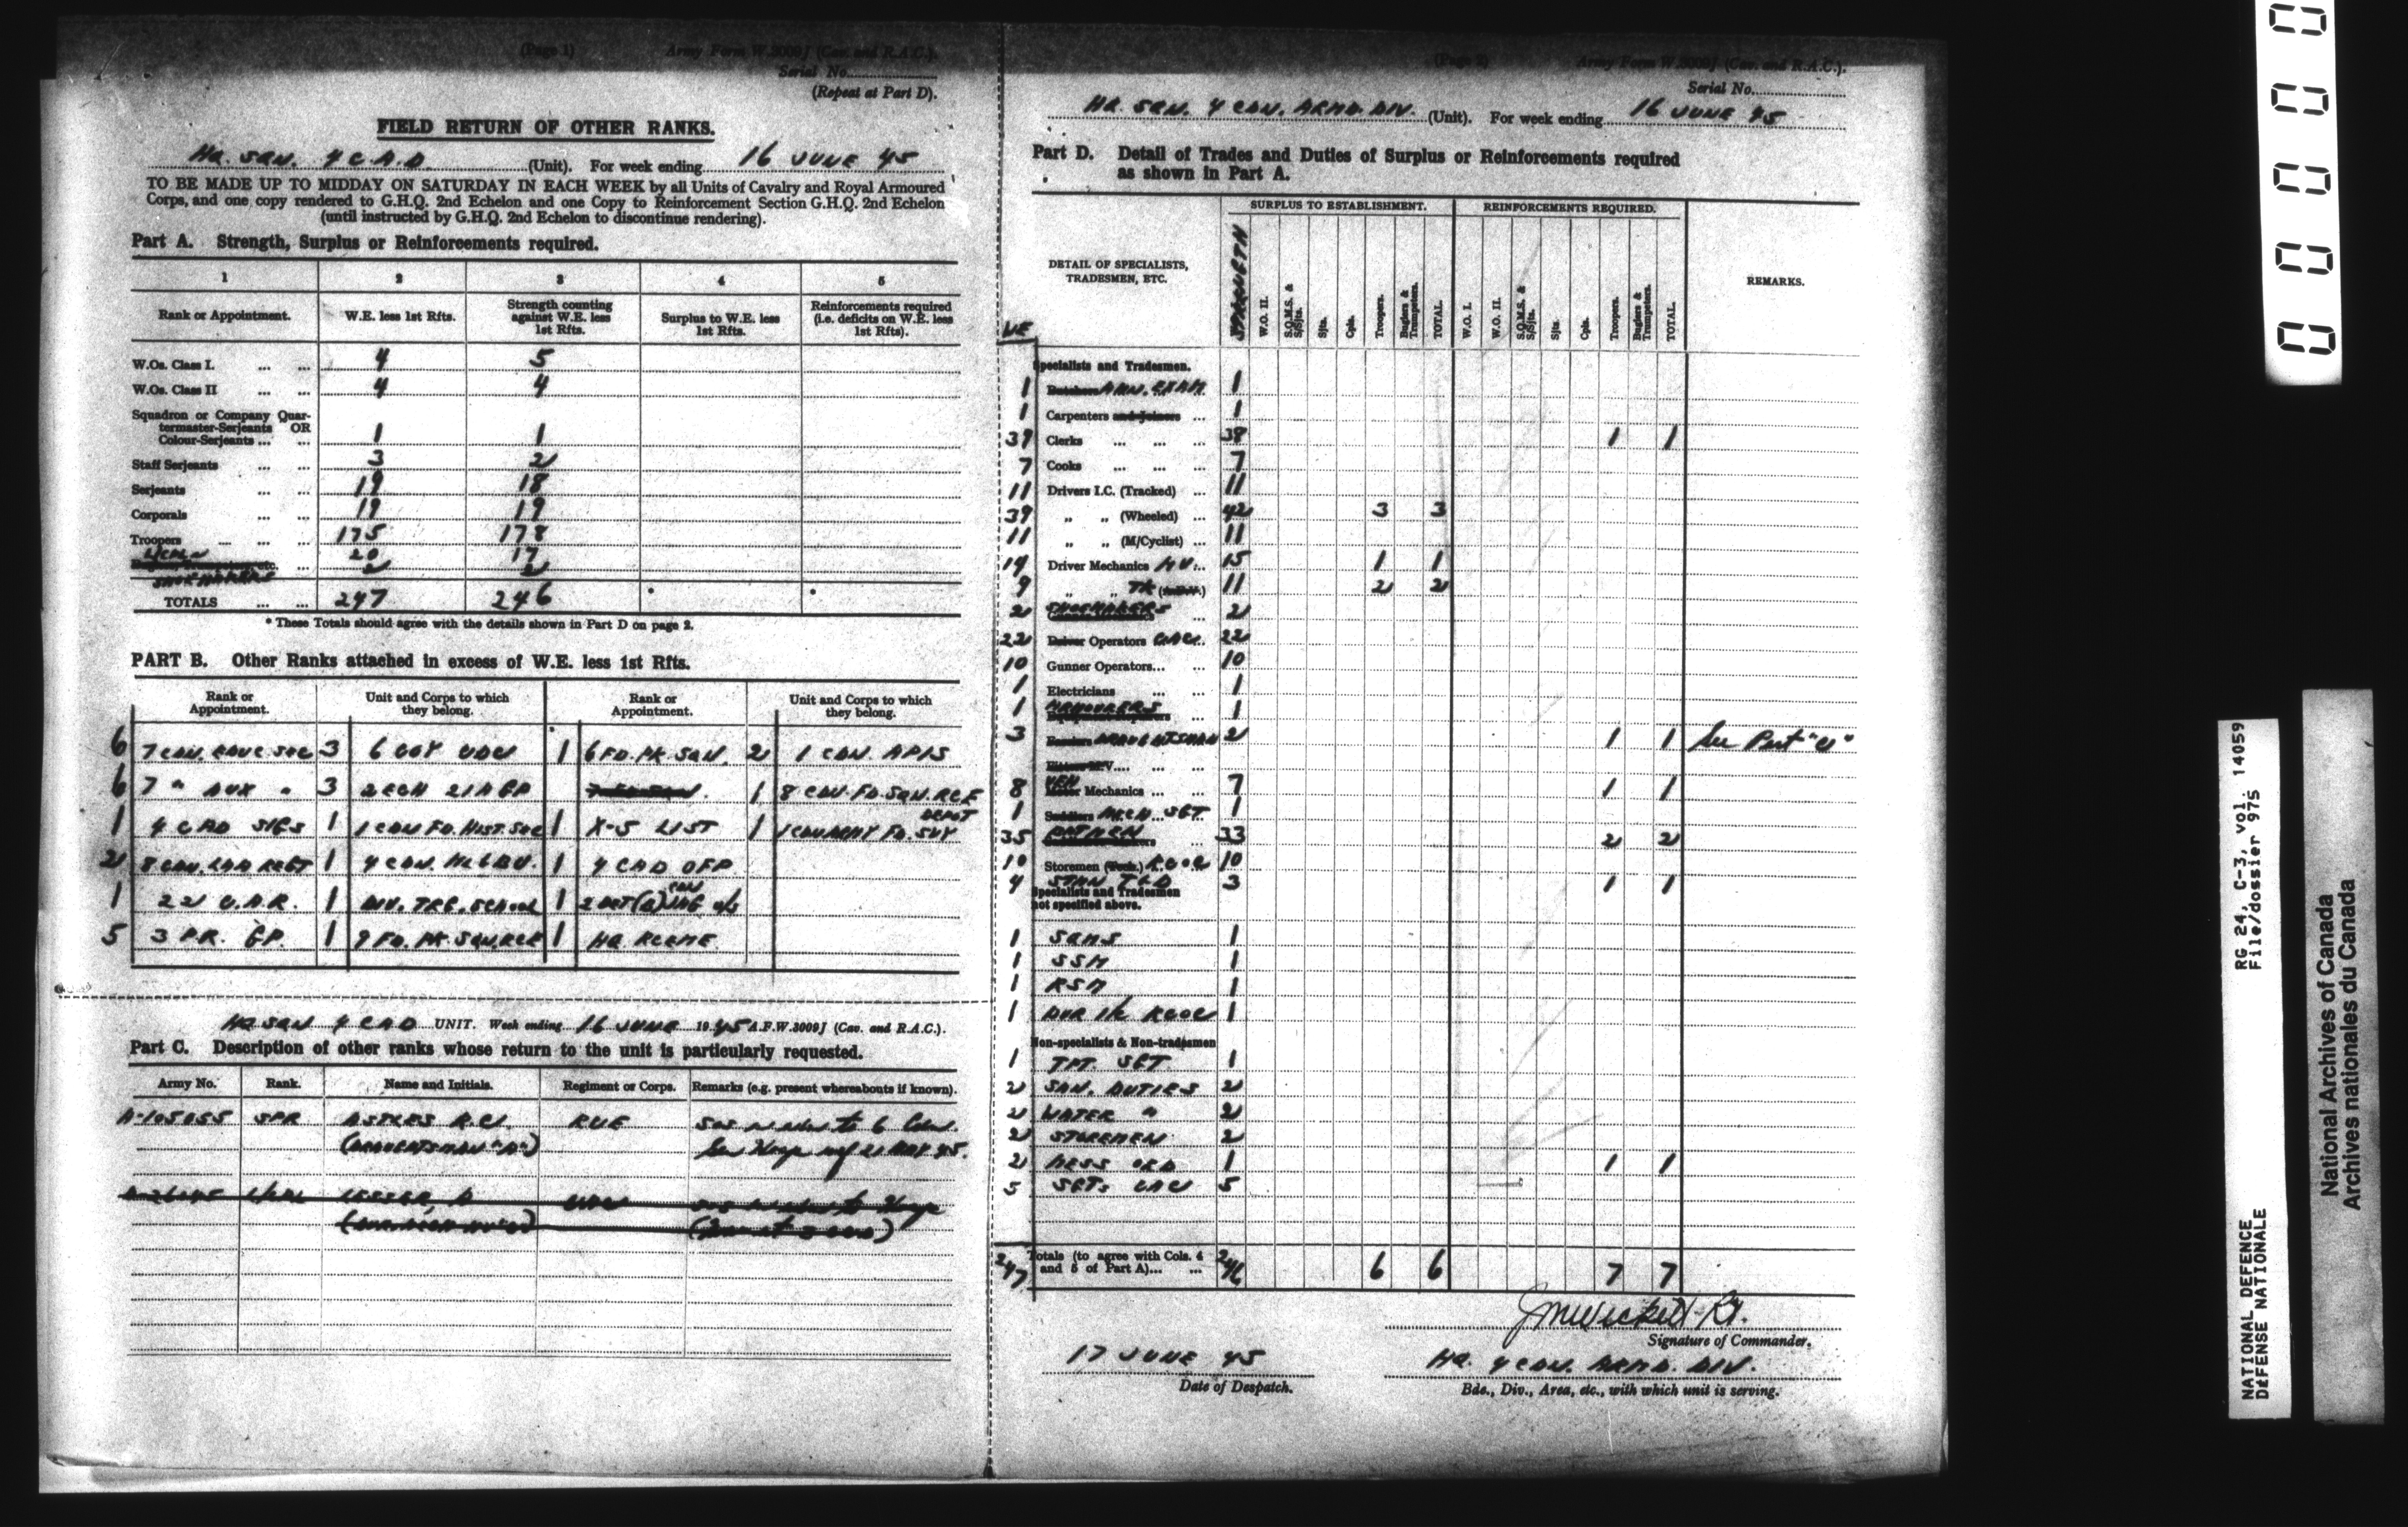 (Page 1) Army Form W.3009J (Cav. and R.A.C.).
Serial No.
(Repeat at Part D).
FIELD RETURN OF OTHER RANKS.
HQ. SQN. 4 C.A.D. (Unit). For week ending 16 JUNE 45
TO BE MADE UP TO MIDDAY ON SATURDAY IN EACH WEEK by all Units of Cavalry and Royal Armoured
Corps, and one copy rendered to G.H.Q. 2nd Echelon and one Copy to Reinforcement Section G.H.Q. 2nd Echelon
(until instructed by G.H.Q. 2nd Echelon to discontinue rendering).
Part A. Strength, Surplus or Reinforcements required.
1 2 3 4 5
Rank or Appointment. W.E. less 1st Rfts. Strength counting against W.E. less 1st Rfts. Surplus to W.E. less 1st Rfts. Reinforcements required (i.e. deficits on W.E. less 1st Rfts).
W.Os. Class I. ... ... 4 5
W.Os. Class II ... ... 4 4
Squadron or Company Quar-
termaster-Serjeants OR
Colour-Serjeants ... ... 1 1
Staff Serjeants ... ... 3 2
Serjeants ... ... 19 18
Corporals ... ... 19 19
Troopers ... ... ... 175 178
L/CPLs 20 17
etc. ... 2 2
SHOEMAKERS
TOTALS ... ... 247 246 * *
* These Totals should agree with the details shown in Part D on page 2.
PART B. Other Ranks attached in excess of W.E. less 1st Rfts.
Rank or Appointment. Unit and Corps to which they belong. Rank or Appointment. Unit and Corps to which they belong.
6 7 CDN. EDUC SEC 3 6 COY CDC 1 6 FD. PK. SQN. 2 1 CDN. APIS
6 7 " AUX " 3 2 ECH 21 A GP 1 8 CDN. FD. SQN. RCE
1 4 CAD SIGS 1 1 CDN FD. HIST. SEC 1 X-5 LIST 1 1 CDN ARMY FD. SVY DEPOT
2 8 CDN. LAA REGT 1 4 CDN. 1 4 CAD OFP
1 22 C.A.R. 1 DIV. TRG. SCHOOL 1 2 DET (A) CDN
5 3 P.R. GP. 1 9 FD. PK. SQN. RCE 1 HQ RCEME
HQ SQN 4 CAD UNIT. Week ending 16 JUNE 1945 A.F.W.3009J (Cav. and R.A.C.).
Part C. Description of other ranks whose return to the unit is particularly requested.
Army No. Rank. Name and Initials. Regiment or Corps. Remarks (e.g. present whereabouts if known).
A-105055 SPR R.C. RCE SOS to 6 Cdn.
(DRAUGHTSMAN "A") Gen Hosp 21 MAY 45.
(Page 2) Army Form W.3009J (Cav. and R.A.C.).
Serial No.
HQ. SQN. 4 CDN. ARMD. DIV. (Unit). For week ending 16 JUNE 45
Part D. Detail of Trades and Duties of Surplus or Reinforcements required
as shown in Part A.
SURPLUS TO ESTABLISHMENT. REINFORCEMENTS REQUIRED.
WE DETAIL OF SPECIALISTS, TRADESMEN, ETC. STRENGTH W.O. II. S.Q.M.S. & S/Sjts. Sjts. Cpls. Troopers. Buglers & Trumpeters. TOTAL. W.O. I. W.O. II. S.Q.M.S. & S/Sjts. Sjts. Cpls. Troopers. Buglers & Trumpeters. TOTAL. REMARKS.
Specialists and Tradesmen.
1 Butchers AMN. EXAM 1
1 Carpenters and Joiners ... 1
39 Clerks ... ... ... 38 1 1
7 Cooks ... ... ... 7
11 Drivers I.C. (Tracked) ... 11
39 " " (Wheeled) ... 42 3 3
11 " " (M/Cyclist) ... 11
14 Driver Mechanics M.V... 15 1 1
9 " " TK 11 2 2
2 SHOEMAKERS ... 2
22 Driver Operators CAC.. 22
10 Gunner Operators... ... 10
1 Electricians ... ... 1
1 ARMOURERS 1
3 DRAUGHTSMAN 2 1 1 See Part "C"
8 VEH Motor Mechanics ... ... 7 1 1
1 Saddlers MECH. SGT. 1
35 BATMEN ... 33 2 2
10 Storemen (Tech.) RCOC 10
4 STMN TCD 3 1 1
Specialists and Tradesmen
not specified above.
1 SQMS 1
1 SSM 1
1 RSM 1
1 DVR I/C RCOC 1
Non-specialists & Non-tradesmen
1 TPT. SGT 1
2 SAN. DUTIES 2
2 WATER " 2
2 STOREMEN 2
2 MESS ORD 1 1 1
5 SGTs CAC 5
247 Totals (to agree with Cols. 4
and 5 of Part A)... ... 246 6 6 7 7
Signature of Commander.
17 JUNE 45 HQ. 4 CDN. ARMD. DIV.
Date of Despatch. Bde., Div., Area, etc., with which unit is serving.
NATIONAL DEFENCE RG 24, C-3, vol. 14059
DÉFENSE NATIONALE File/dossier 975
National Archives of Canada
Archives nationales du Canada
0 0 0 0